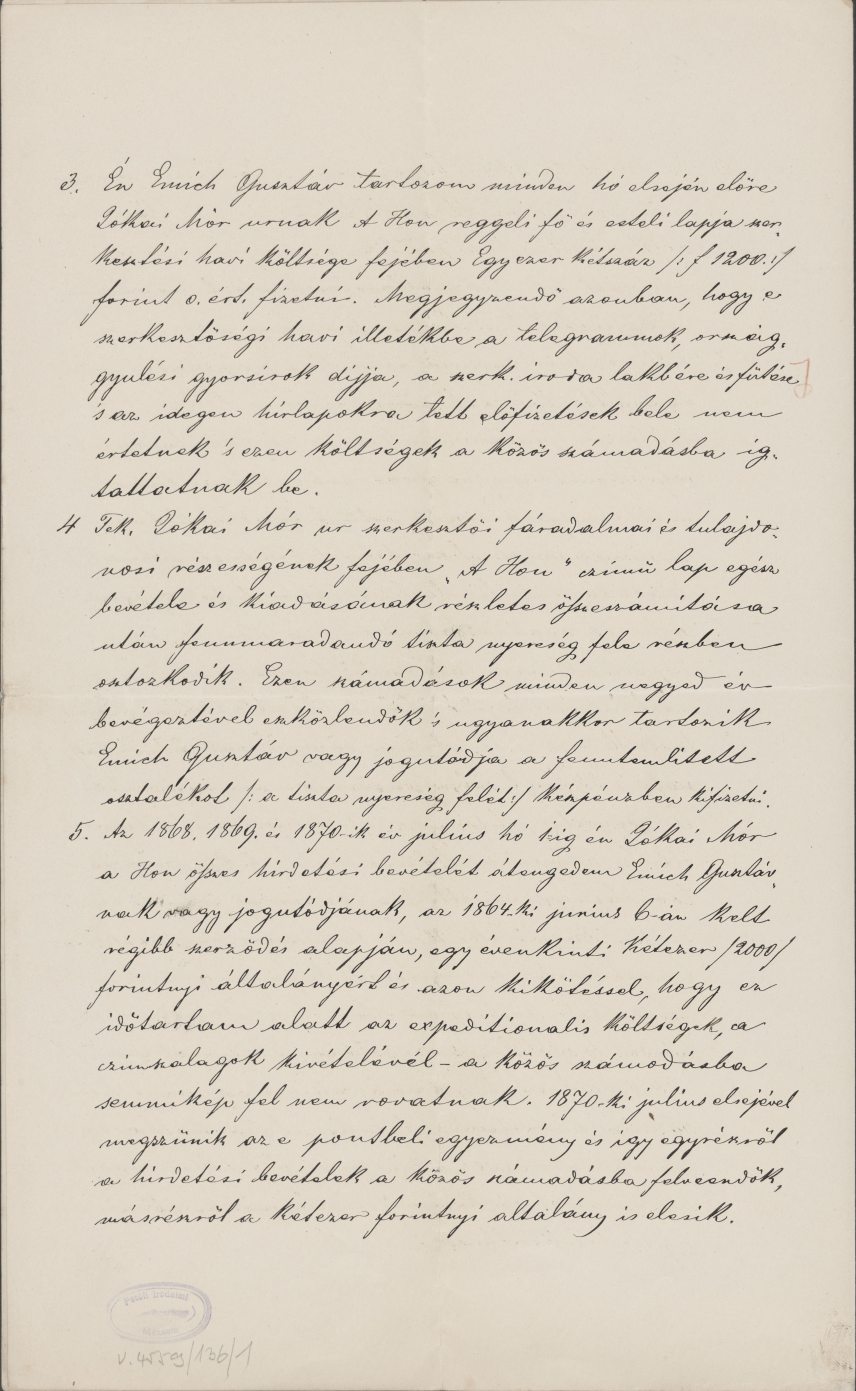 3. Én Emich Gusztáv tartozom minden hó elsején előre
Jókai Mór urnak A Hon reggeli fő és esteli lapja szer-
kesztési havi költsége fejében Egyezer kétszáz /: f 1200. :/
forint o. ért. fizetni. Megjegyzendő azonban, hogy e
szerkesztőségi havi illetékbe a telegrammok, ország-
gyulési gyorsirok dijja, a szerk. iroda lakbére és fűtése
's az idegen hírlapokra tett előfizetések bele nem
értetnek 's ezen költségek a közös számadásba ig-
tattatnak be.
4 Tek. Jókai Mór ur szerkesztői fáradalmai és tulajdo-
nosi részességének fejében „A Hon" czímű lap egész
bevétele és kiadásának részletes összeszámítása
után fennmaradandó tiszta nyereség fele részben
osztozkodik. Ezen számadások minden negyed év
bevégeztével eszközlendők 's ugyanakkor tartozik
Emich Gusztáv vagy jogutódja a fenntemlített
osztalékot /: a tiszta nyereség felét :/ készpénzben kifizetni.
5. Az 1868. 1869. és 1870-ik év július hó 1-ig én Jókai Mór
a Hon összes hírdetési bevételét átengedem Emich Gusztáv-
nak vagy jogutódjának, az 1864-ki junius 6-án kelt
régibb szerződés alapján, egy évenkinti Kétezer /2000/
forintnyi általányért és azon kikötéssel, hogy ez
időtartam alatt az expeditionalis költségek, a
czimszalagok kivételével – a közös számodásba
semmikép fel nem rovatnak. 1870-ki julius elsejével
megszűnik az e pontbeli egyezmény és igy egyrészről
a hírdetési bevételek a közös számadásba felveendők,
másrészről a kétezer forintnyi altalány is elesik.
Petőfi Irodalmi
Múzeum
V. 4559/136/1